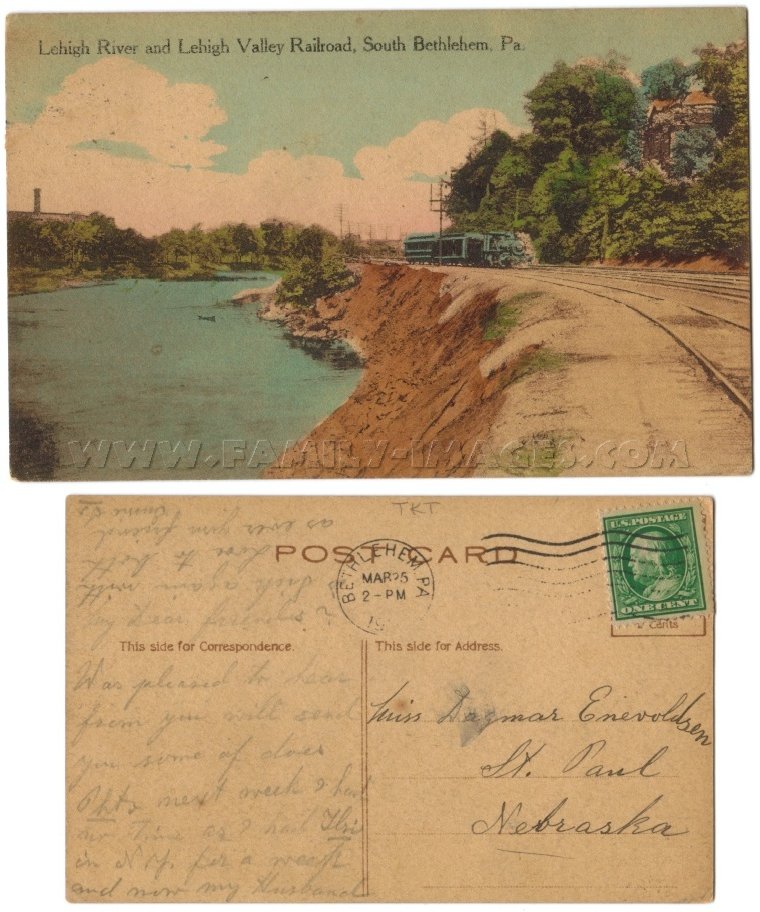 Lehigh River and Lehigh Valley Railroad, South Bethlehem, Pa.
WWW.FAMILY-IMAGES.COM
TKT
POST CARD
BETHLEHEM PA
MAR 25
2-PM
19
U.S. POSTAGE
ONE CENT
Cents
This side for Correspondence.
This side for Address.
My Dear friends
Was pleased to hear
from you will send
you some of does
next week I had
no time as I had
in N.Y. for a week
and now my Husband
is sick again with
love to both
as ever your friend
Miss Dagmar Enevoldsen
St. Paul
Nebraska